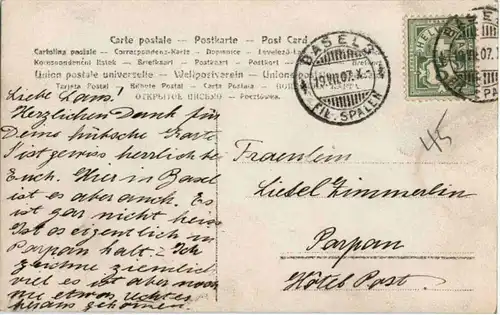 Carte postale — Postkarte — Post Card
Cartolina postale — Correspondenz-Karte — Dopisnice — Levelező-Lap
Korespondenční lístek — Briefkaart — Postkort — Postkaart — Brefkort
Union postale universelle — Weltpostverein — Unione
Tarjeta Postal — Bilhete Postal — Carta Postala
ОТКРЫТОЕ ПИСЬМО — Pocztówka
BASEL
19.VII.07.X
FIL. SPALEN
HELVETIA
07.X
SPALEN
45
Liebe
Herzlichen Dank für
Deine hübsche Karte
's ist gewiss herrlich bei
Euch. Hier in Basel
ist es aber auch. Es
ist gar nicht heiss
Ist es eigentlich in
Parpan kalt? Ich
zeichne ziemlich
viel es ist aber noch
nie etwas rechtes
heraus gekommen.
Fraeulein
Liesel Zimmerlin
Parpan
Hôtel Post.